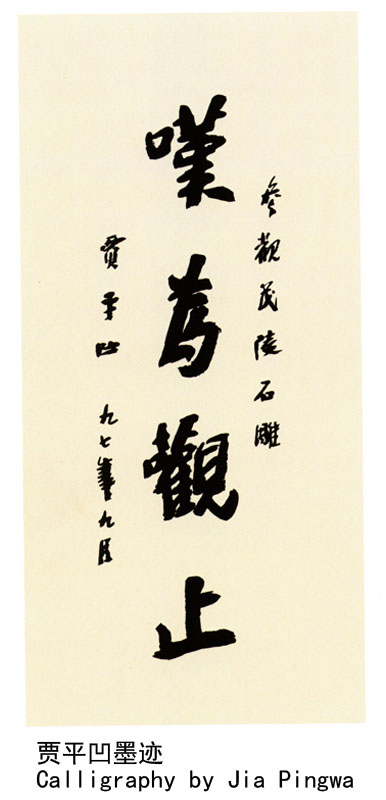 參觀茂陵石雕
嘆為觀止
贾平凹 九七年九月
贾平凹墨迹
Calligraphy by Jia Pingwa